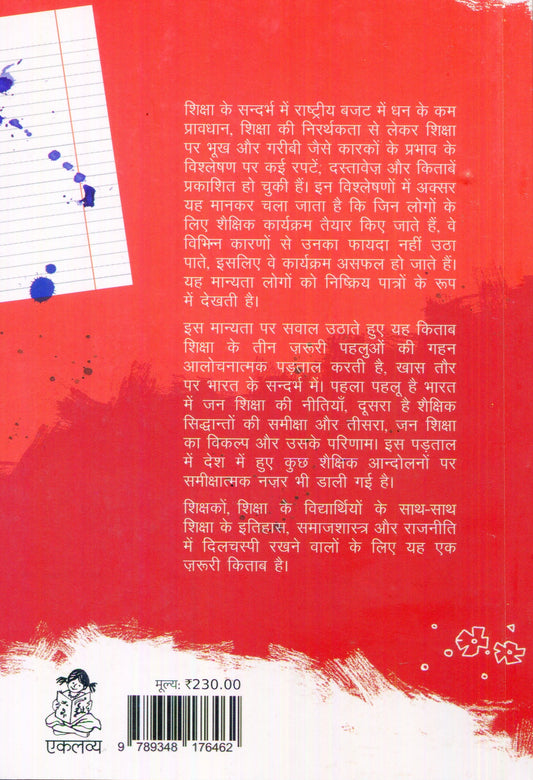 शिक्षा के सन्दर्भ में राष्ट्रीय बजट में धन के कम
प्रावधान, शिक्षा की निरर्थकता से लेकर शिक्षा
पर भूख और गरीबी जैसे कारकों के प्रभाव के
विश्लेषण पर कई रपटें, दस्तावेज़ और किताबें
प्रकाशित हो चुकी हैं। इन विश्लेषणों में अक्सर
यह मानकर चला जाता है कि जिन लोगों के
लिए शैक्षिक कार्यक्रम तैयार किए जाते हैं, वे
विभिन्न कारणों से उनका फायदा नहीं उठा
पाते, इसलिए वे कार्यक्रम असफल हो जाते हैं।
यह मान्यता लोगों को निष्क्रिय पात्रों के रूप
में देखती है।
इस मान्यता पर सवाल उठाते हुए यह किताब
शिक्षा के तीन ज़रूरी पहलुओं की गहन
आलोचनात्मक पड़ताल करती है, खास तौर
पर भारत के सन्दर्भ में। पहला पहलू है भारत
में जन शिक्षा की नीतियाँ, दूसरा है शैक्षिक
सिद्धान्तों की समीक्षा और तीसरा, जन शिक्षा
का विकल्प और उसके परिणाम। इस पड़ताल
में देश में हुए कुछ शैक्षिक आन्दोलनों पर
समीक्षात्मक नज़र भी डाली गई है।
शिक्षकों, शिक्षा के विद्यार्थियों के साथ-साथ
शिक्षा के इतिहास, समाजशास्त्र और राजनीति
में दिलचस्पी रखने वालों के लिए यह एक
ज़रूरी किताब है।
मूल्य: ₹230.00
एकलव्य
9 789348 176462